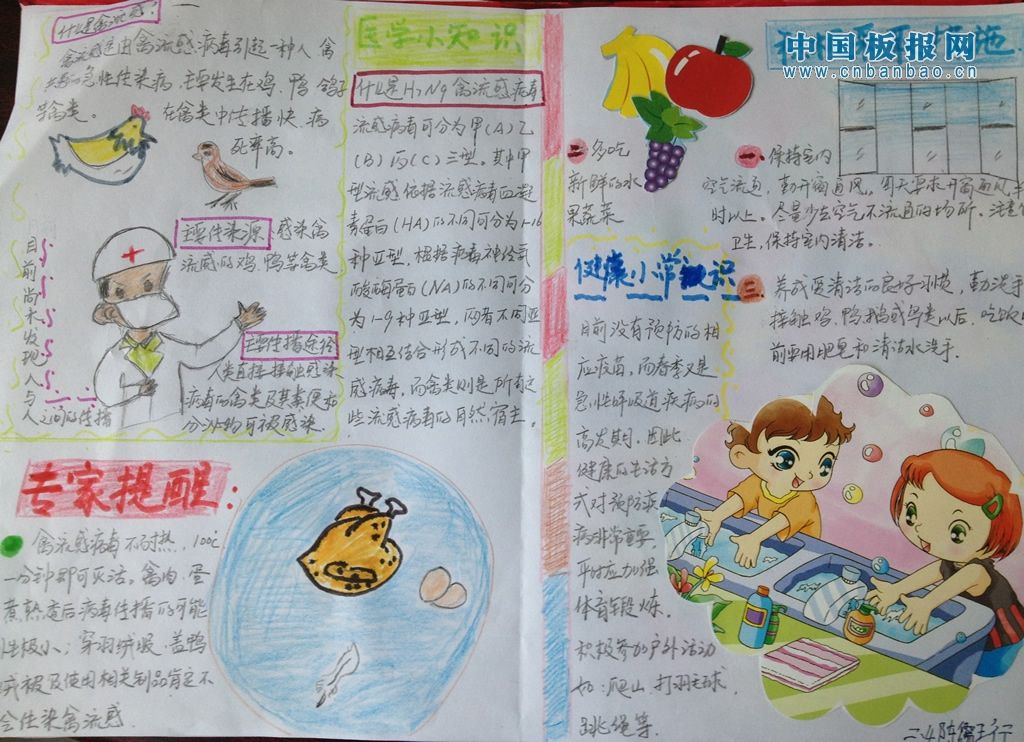 什么是禽流感？
禽流感是由禽流感病毒引起一种人禽
急性传染病，主要发生在鸡、鸭、鸽子
等禽类。在禽类中传播快，病
死率高。
主要传染源：感染禽
流感的鸡、鸭等禽类
目前尚未发现人与
人之间的传播
主要传播途径
人类直接接触感染
病毒的禽类及其粪便和
分泌物可被感染
专家提醒：
禽流感病毒不耐热，100℃
一分钟即可灭活。禽肉、蛋
煮熟煮后病毒传播的可能
性极小；穿羽绒服、盖鸭
绒被及使用相关制品肯定不
会传染禽流感
医学小知识
什么是H7N9禽流感病毒
流感病毒可分为甲(A)乙
(B)丙(C)三型。其中甲
型流感依据流感病毒血凝
素蛋白(HA)的不同可分为1-16
种亚型，根据病毒神经氨
酸酶蛋白(NA)的不同可分
为1-9种亚型，两者不同亚
型相互结合形成不同的流
感病毒，而禽类则是所有这
些流感病毒的自然宿主。
中国板报网
www.cnbanbao.cn
一、保持室内
空气流通，勤开窗通风。
时以上。尽量少去空气不流通的场所，注意
卫生，保持室内清洁。
二 多吃
新鲜的水
果蔬菜
三、养成爱清洁的良好习惯，勤洗手
接触鸡、鸭、鹅或鸟类以后，吃饭
前要用肥皂和清洁水洗手。
健康小常识
目前没有预防的相
应疫苗，而春季又是
急性呼吸道疾病的
高发期，因此
健康的生活方
式对预防疾
病非常重要，
平时应加强
体育锻炼。
积极参加户外活动
如：爬山、打羽毛球、
跳绳等